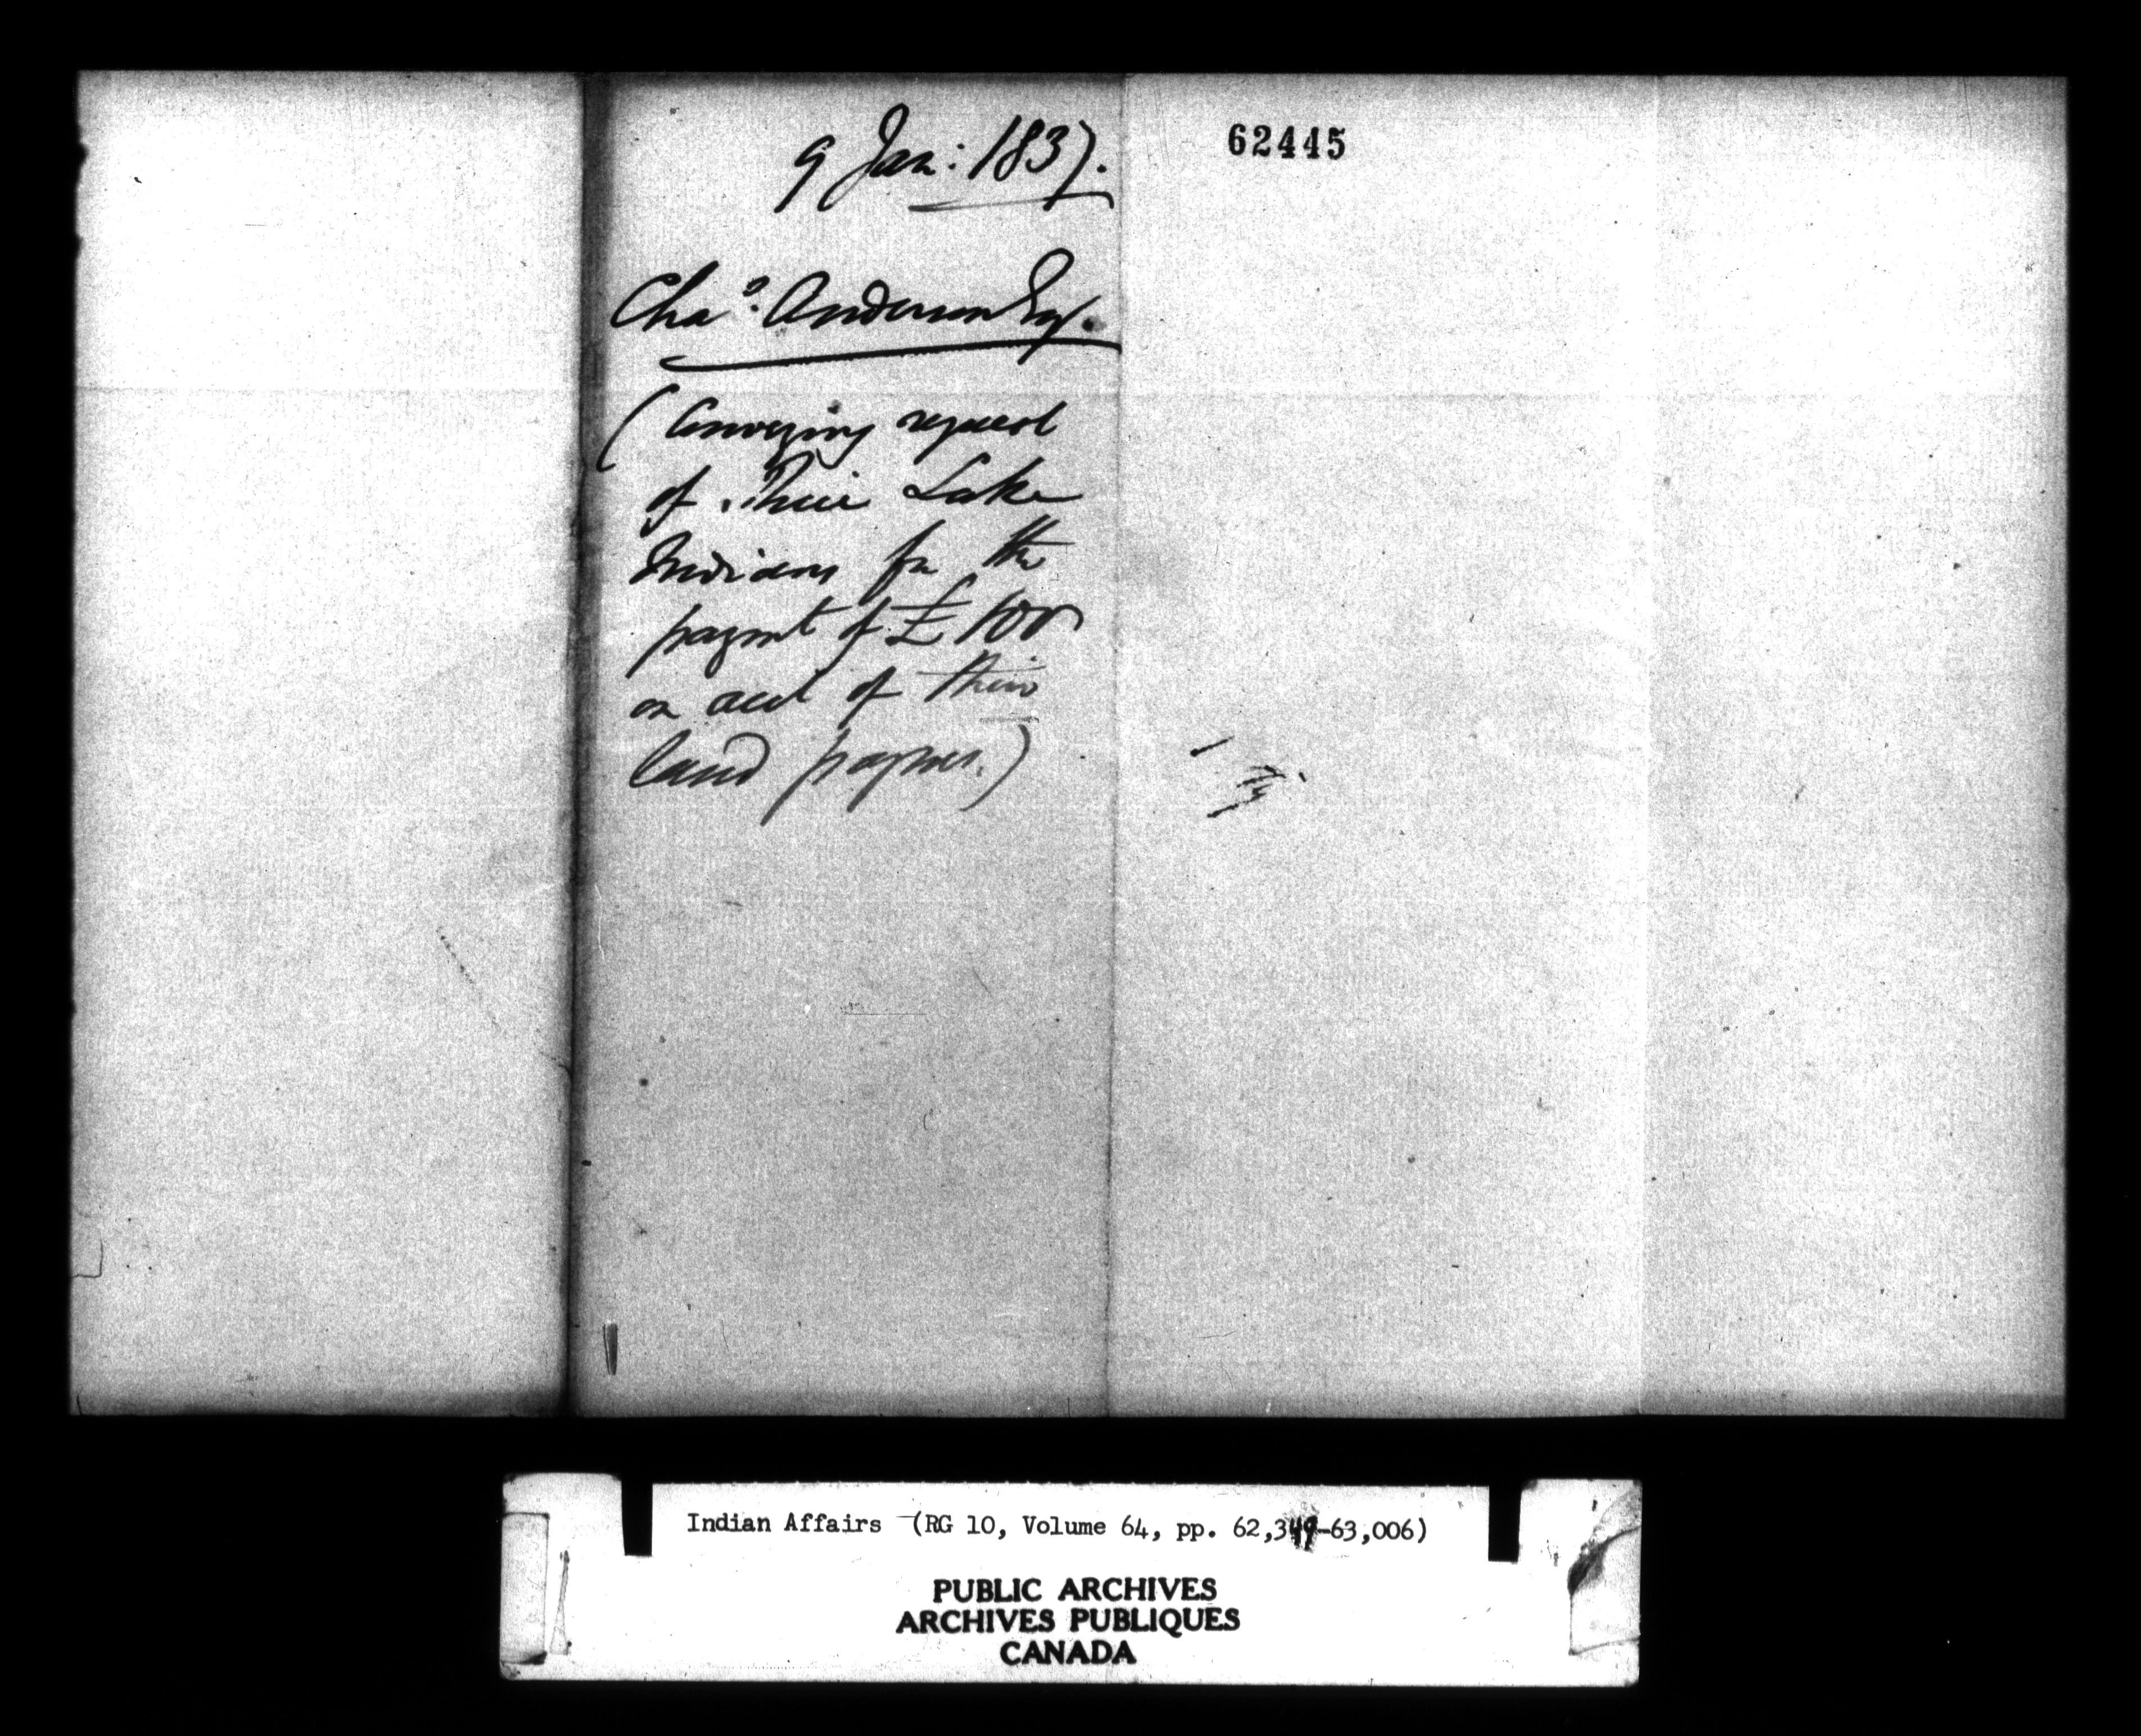 9 Jan: 1837.
Chas. Anderson Esq.
(Conveying request
of Rice Lake
Indians for the
paymt of £100
on acct of their
land paymts.)
62445
Indian Affairs (RG 10, Volume 64, pp. 62,349-63,006)
PUBLIC ARCHIVES
ARCHIVES PUBLIQUES
CANADA